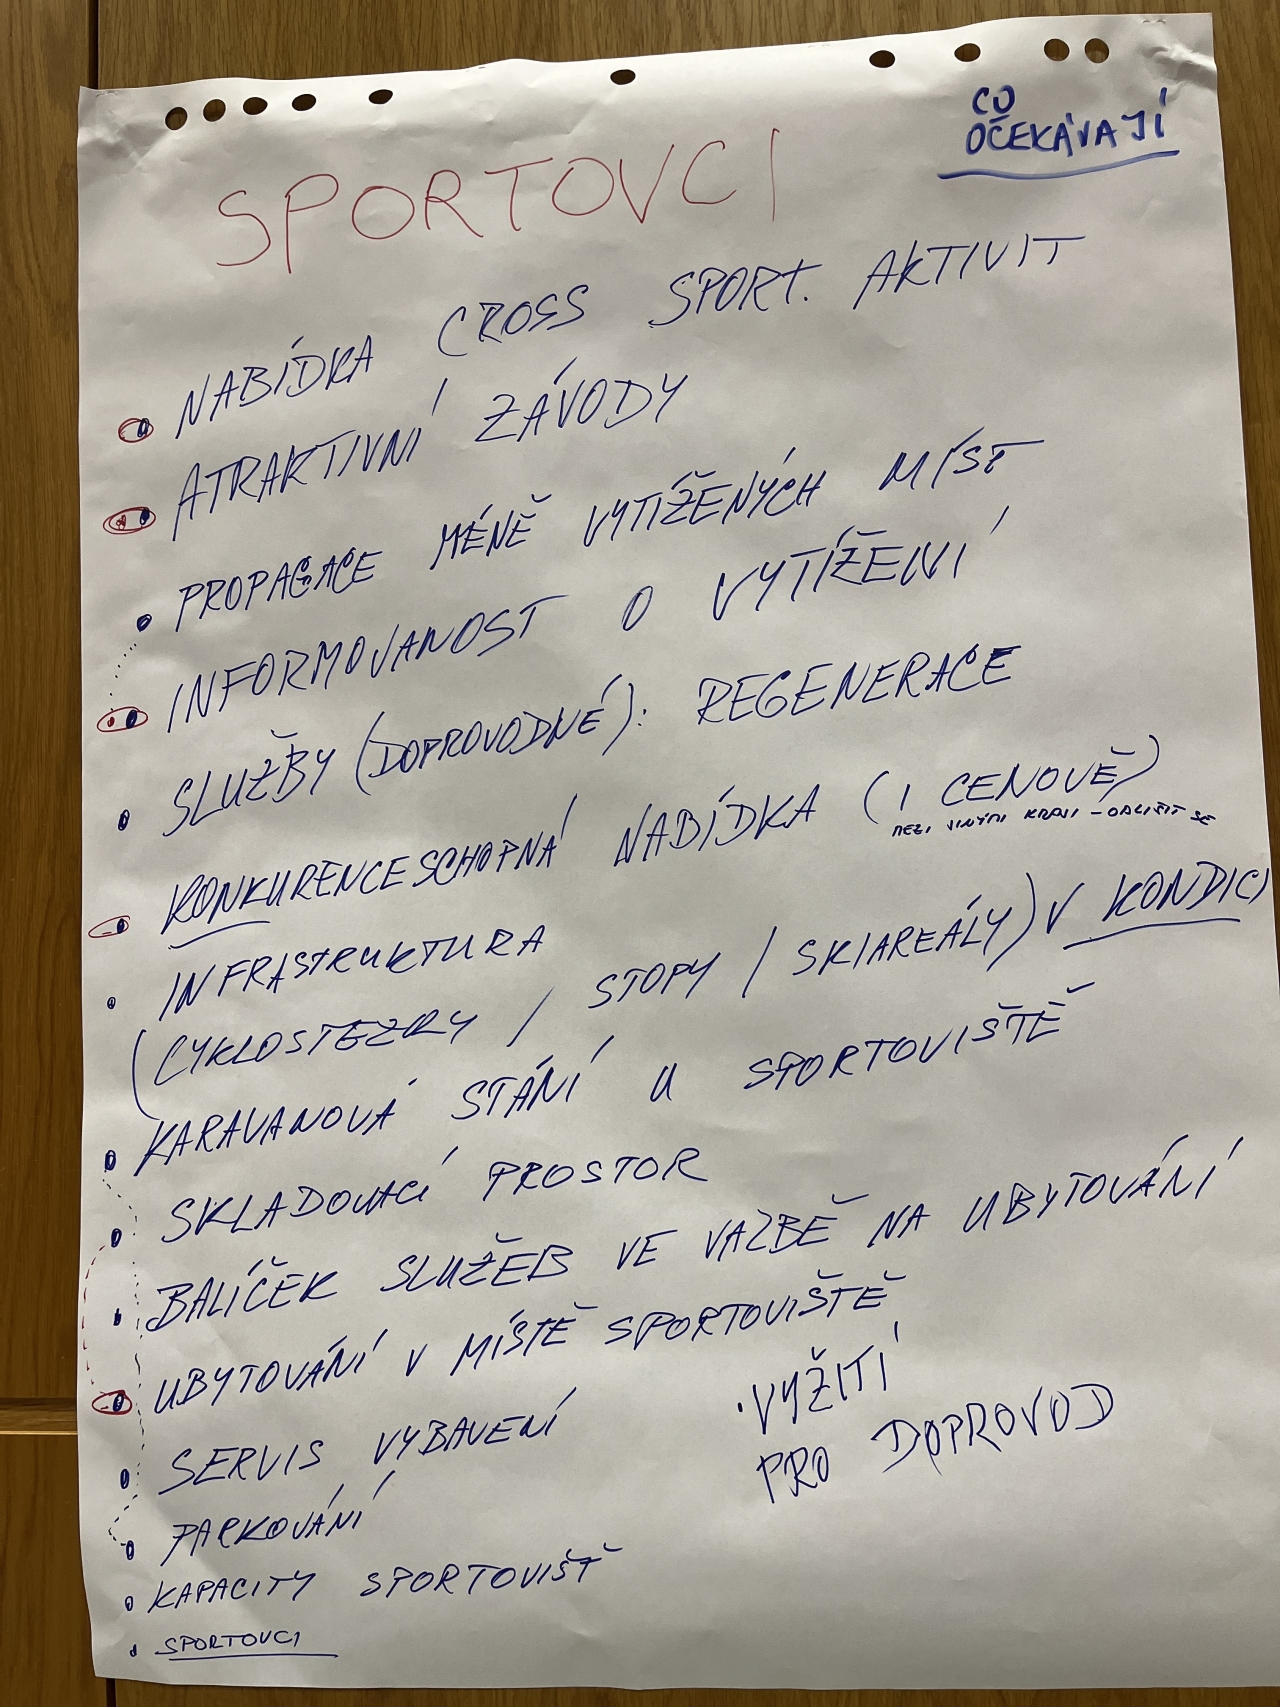 CO
OČEKÁVAJÍ
SPORTOVCI
NABÍDKA CROSS SPORT. AKTIVIT
ATRAKTIVNÍ ZÁVODY
PROPAGACE MÉNĚ VYTÍŽENÝCH MÍST
INFORMOVANOST O VYTÍŽENÍ
SLUŽBY (DOPROVODNÉ): REGENERACE
KONKURENCESCHOPNÁ NABÍDKA (I CENOVĚ)
MEZI JINÝMI KRAJI - ODLIŠIT SE
INFRASTRUKTURA
(CYKLOSTEZKY / STOPY / SKIAREÁLY) V KONDICI
KARAVANOVÁ STÁNÍ U SPORTOVIŠTĚ
SKLADOVACÍ PROSTOR
BALÍČEK SLUŽEB VE VAZBĚ NA UBYTOVÁNÍ
UBYTOVÁNÍ V MÍSTĚ SPORTOVIŠTĚ
SERVIS VYBAVENÍ
PARKOVÁNÍ
KAPACITY SPORTOVIŠŤ
SPORTOVCI
• VYŽITÍ
PRO DOPROVOD